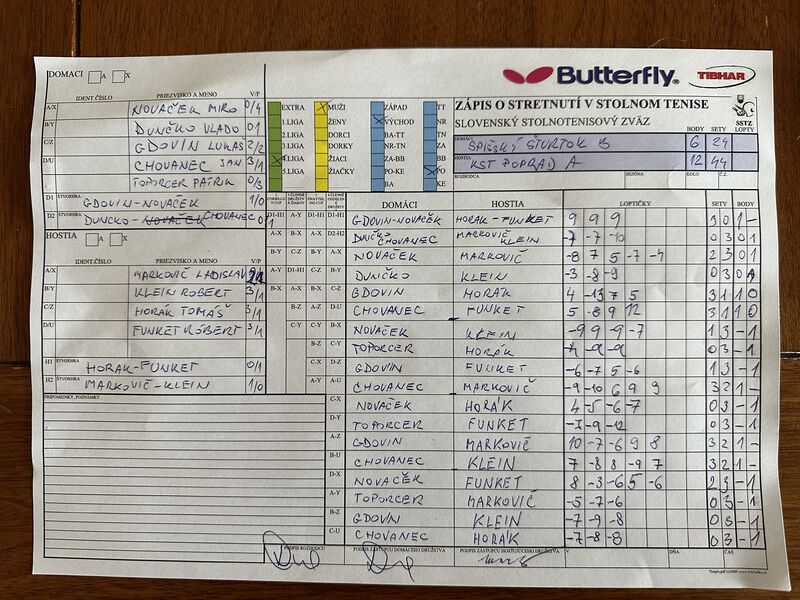 Butterfly
TIBHAR
DOMACI A X
IDENT.ČÍSLO PRIEZVISKO A MENO V/P
A/X NOVAČEK MIRO 0/4
B/Y DUNČKO VLADO 0/1
C/Z GDOVIN LUKAS 2/2
D/U CHOVANEC JAN 3/1
TOPORCER PATRIK 0/3
D1 ŠTVORHRA GDOVIN-NOVAČEK 1/0
D2 ŠTVORHRA DUNCKO- NOVAČEK CHOVANEC 0/1
HOSTIA A X
IDENT.ČÍSLO PRIEZVISKO A MENO V/P
A/X MARKOVIČ LADISLAV
B/Y KLEIN ROBERT 3/1
C/Z HORÁK TOMÁŠ 3/1
D/U FUNKET RÓBERT 3/1
H1 ŠTVORHRA HORAK-FUNKET 0/1
H2 ŠTVORHRA MARKOVIČ-KLEIN 1/0
PRIPOMIENKY, POZNÁMKY
EXTRA MUŽI ZÁPAD TT
1.LIGA ŽENY VÝCHOD NR
2.LIGA DORCI BA-TT TN
3.LIGA DORKY NR-TN ZA
4.LIGA ŽIACI ZA-BB BB
5.LIGA ŽIAČKY PO-KE PO
BA KE
ZÁPIS O STRETNUTÍ V STOLNOM TENISE
SLOVENSKÝ STOLNOTENISOVÝ ZVÄZ
SSTZ
BODY SETY LOPTY
DOMÁCI SPIŠSKÝ ŠTVRTOK B 6 29
HOSTIA KST POPRAD A 12 44
ROZHODCA SEZÓNA KOLO Č.Z.
DOMÁCI HOSTIA LOPTIČKY SETY BODY
D1-H1 GDOVIN-NOVAČEK HORAK-FUNKET 9 9 9 3 0 1 -
D2-H2 DUNČKO CHOVANEC MARKOVIČ KLEIN -7 -7 -10 0 3 0 1
A-X NOVAČEK MARKOVIČ -8 7 5 -7 -4 2 3 0 1
B-Y DUNČKO KLEIN -3 -8 -9 0 3 0 1
C-Z GDOVIN HORÁK 4 -13 7 5 3 1 1 0
D-U CHOVANEC FUNKET 5 8 9 12 3 1 1 0
B-X NOVAČEK KLEIN -9 9 -9 -7 1 3 - 1
TOPORCER HORÁK 0 3 - 1
GDOVIN FUNKET -6 -7 5 -6 1 3 - 1
A-U CHOVANEC MARKOVIČ -9 -10 6 9 9 3 2 1 -
C-X NOVAČEK HORÁK 4 -5 -6 -7 0 3 - 1
D-Y TOPORCER FUNKET -9 -12 0 3 - 1
A-Z GDOVIN MARKOVIČ 10 -7 -6 9 8 3 2 1 -
B-U CHOVANEC KLEIN 7 -8 8 -9 7 3 2 1 -
D-X NOVAČEK FUNKET 8 -3 -6 5 -6 2 3 - 1
A-Y TOPORCER MARKOVIČ -5 -7 -6 0 3 - 1
B-Z GDOVIN KLEIN -7 -9 -8 0 3 - 1
C-U CHOVANEC HORÁK -7 -8 -8 0 3 - 1
PODPIS ROZHODCU PODPIS ZÁSTUPCU DOMÁCEHO DRUŽSTVA PODPIS ZÁSTUPCU HOSŤUJÚCEHO DRUŽSTVA V DŇA ČAS